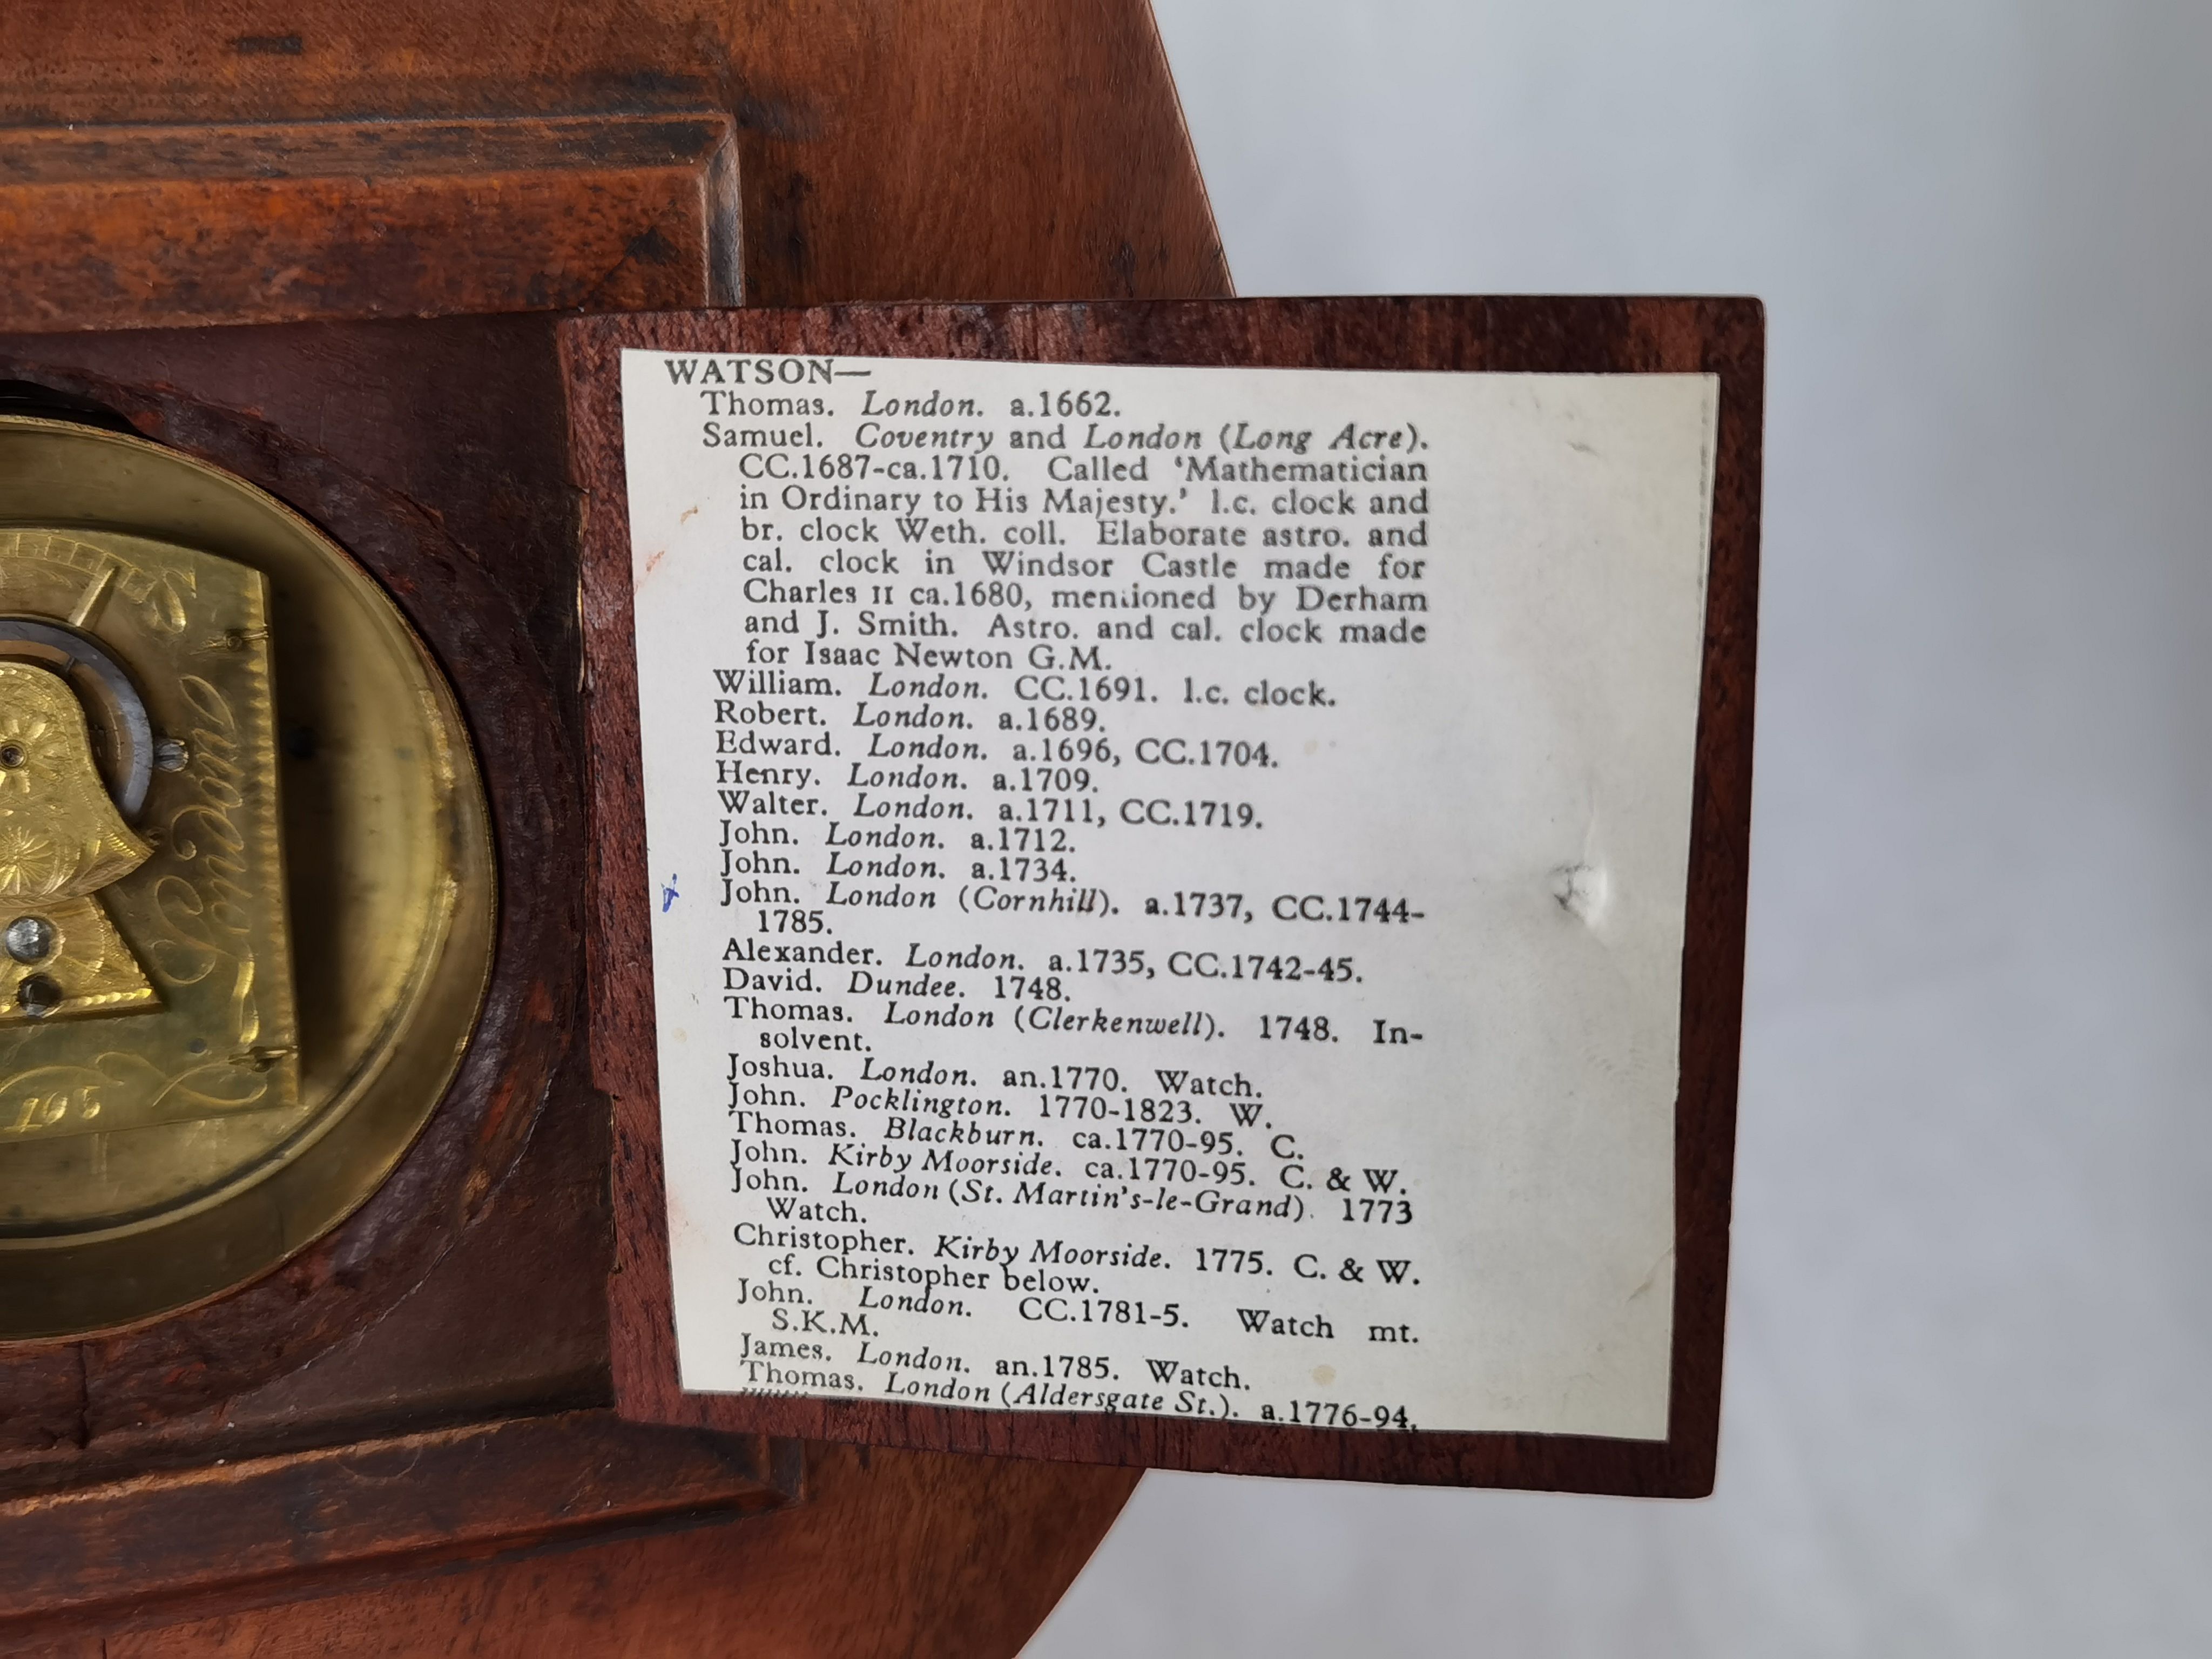 WATSON—
Thomas. London. a.1662.
Samuel. Coventry and London (Long Acre).
CC.1687-ca.1710. Called ‘Mathematician
in Ordinary to His Majesty.’ l.c. clock and
br. clock Weth. coll. Elaborate astro. and
cal. clock in Windsor Castle made for
Charles II ca.1680, mentioned by Derham
and J. Smith. Astro. and cal. clock made
for Isaac Newton G.M.
William. London. CC.1691. l.c. clock.
Robert. London. a.1689.
Edward. London. a.1696, CC.1704.
Henry. London. a.1709.
Walter. London. a.1711, CC.1719.
John. London. a.1712.
John. London. a.1734.
John. London (Cornhill). a.1737, CC.1744-
1785.
Alexander. London. a.1735, CC.1742-45.
David. Dundee. 1748.
Thomas. London (Clerkenwell). 1748. In-
solvent.
Joshua. London. an.1770. Watch.
John. Pocklington. 1770-1823. W.
Thomas. Blackburn. ca.1770-95. C.
John. Kirby Moorside. ca.1770-95. C. & W.
John. London (St. Martin's-le-Grand). 1773
Watch.
Christopher. Kirby Moorside. 1775. C. & W.
cf. Christopher below.
John. London. CC.1781-5. Watch mt.
S.K.M.
James. London. an.1785. Watch.
Thomas. London (Aldersgate St.). a.1776-94,